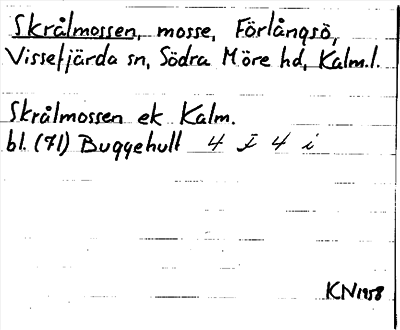 Skrålmossen, mosse, Förlångsö,
Vissefjärda sn, Södra Möre hd, Kalm.l.
Skrålmossen ek Kalm.
bl. (71) Buggehull 4 I 4 i
KN 1958